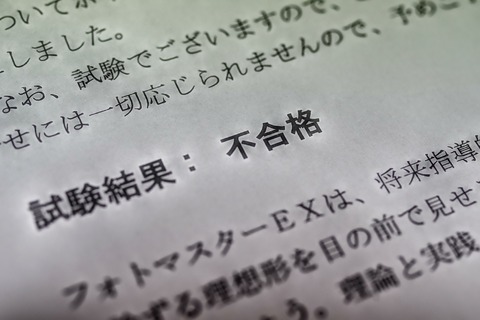 ついてホ
しました。
なお、試験でございますので、
せには一切応じられませんので、予めご
試験結果： 不合格
フォトマスターＥＸは、将来指導的
する理想形を目の前で見せ
う。理論と実践